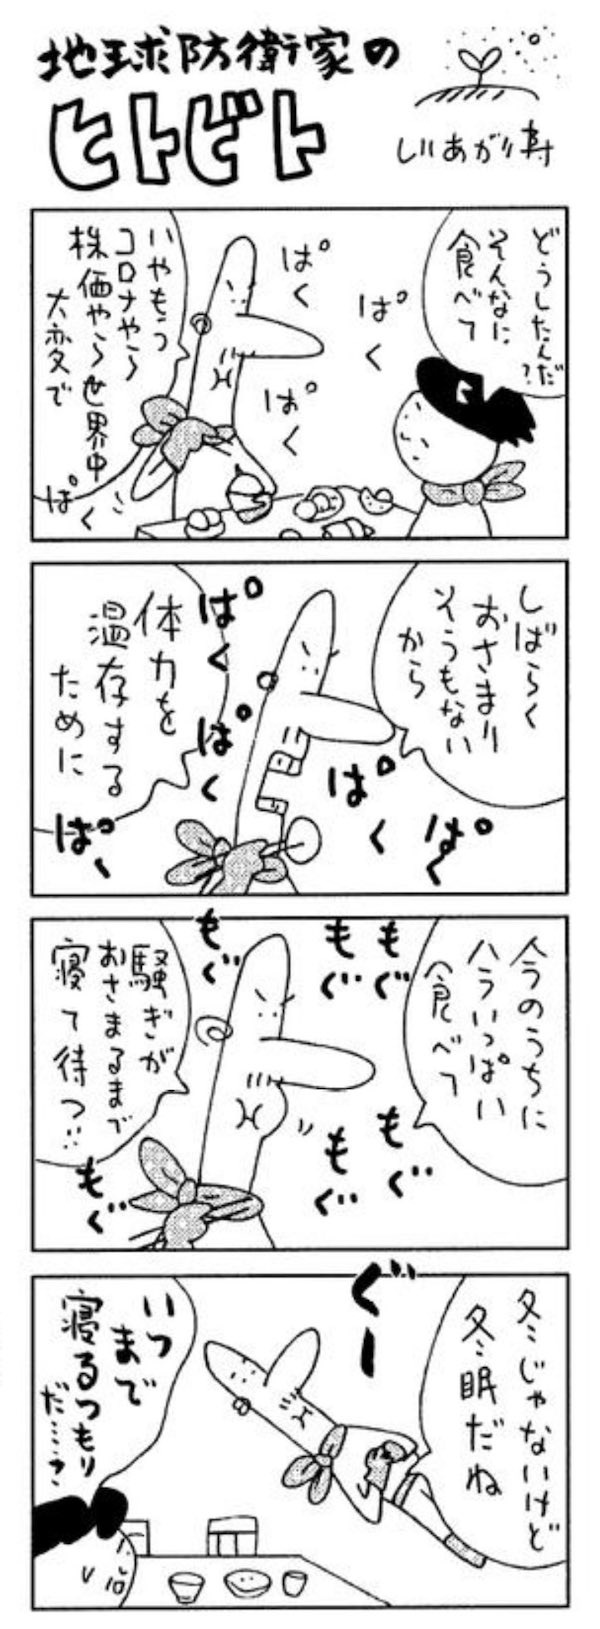 地球防衛家の
ヒトビト
しりあがり寿
どうしたんだ?
そんなに
食べて
ぱく
ぱく
ぱく
いやもう
コロナやら
株価やら世界中
大変で…
ぱく
しばらく
おさまり
そうもない
から
ぱく
ぱく
ぱく
ぱく
体力を
温存する
ために
ぱく
今のうちに
ハラいっぱい
食べて
もぐ
もぐ
もぐ
もぐ
もぐ
騒ぎが
おさまるまで
寝て待つ…
もぐ
冬じゃないけど
冬眠だね
ぐー
いつ
まで
寝るつもり
だ……?